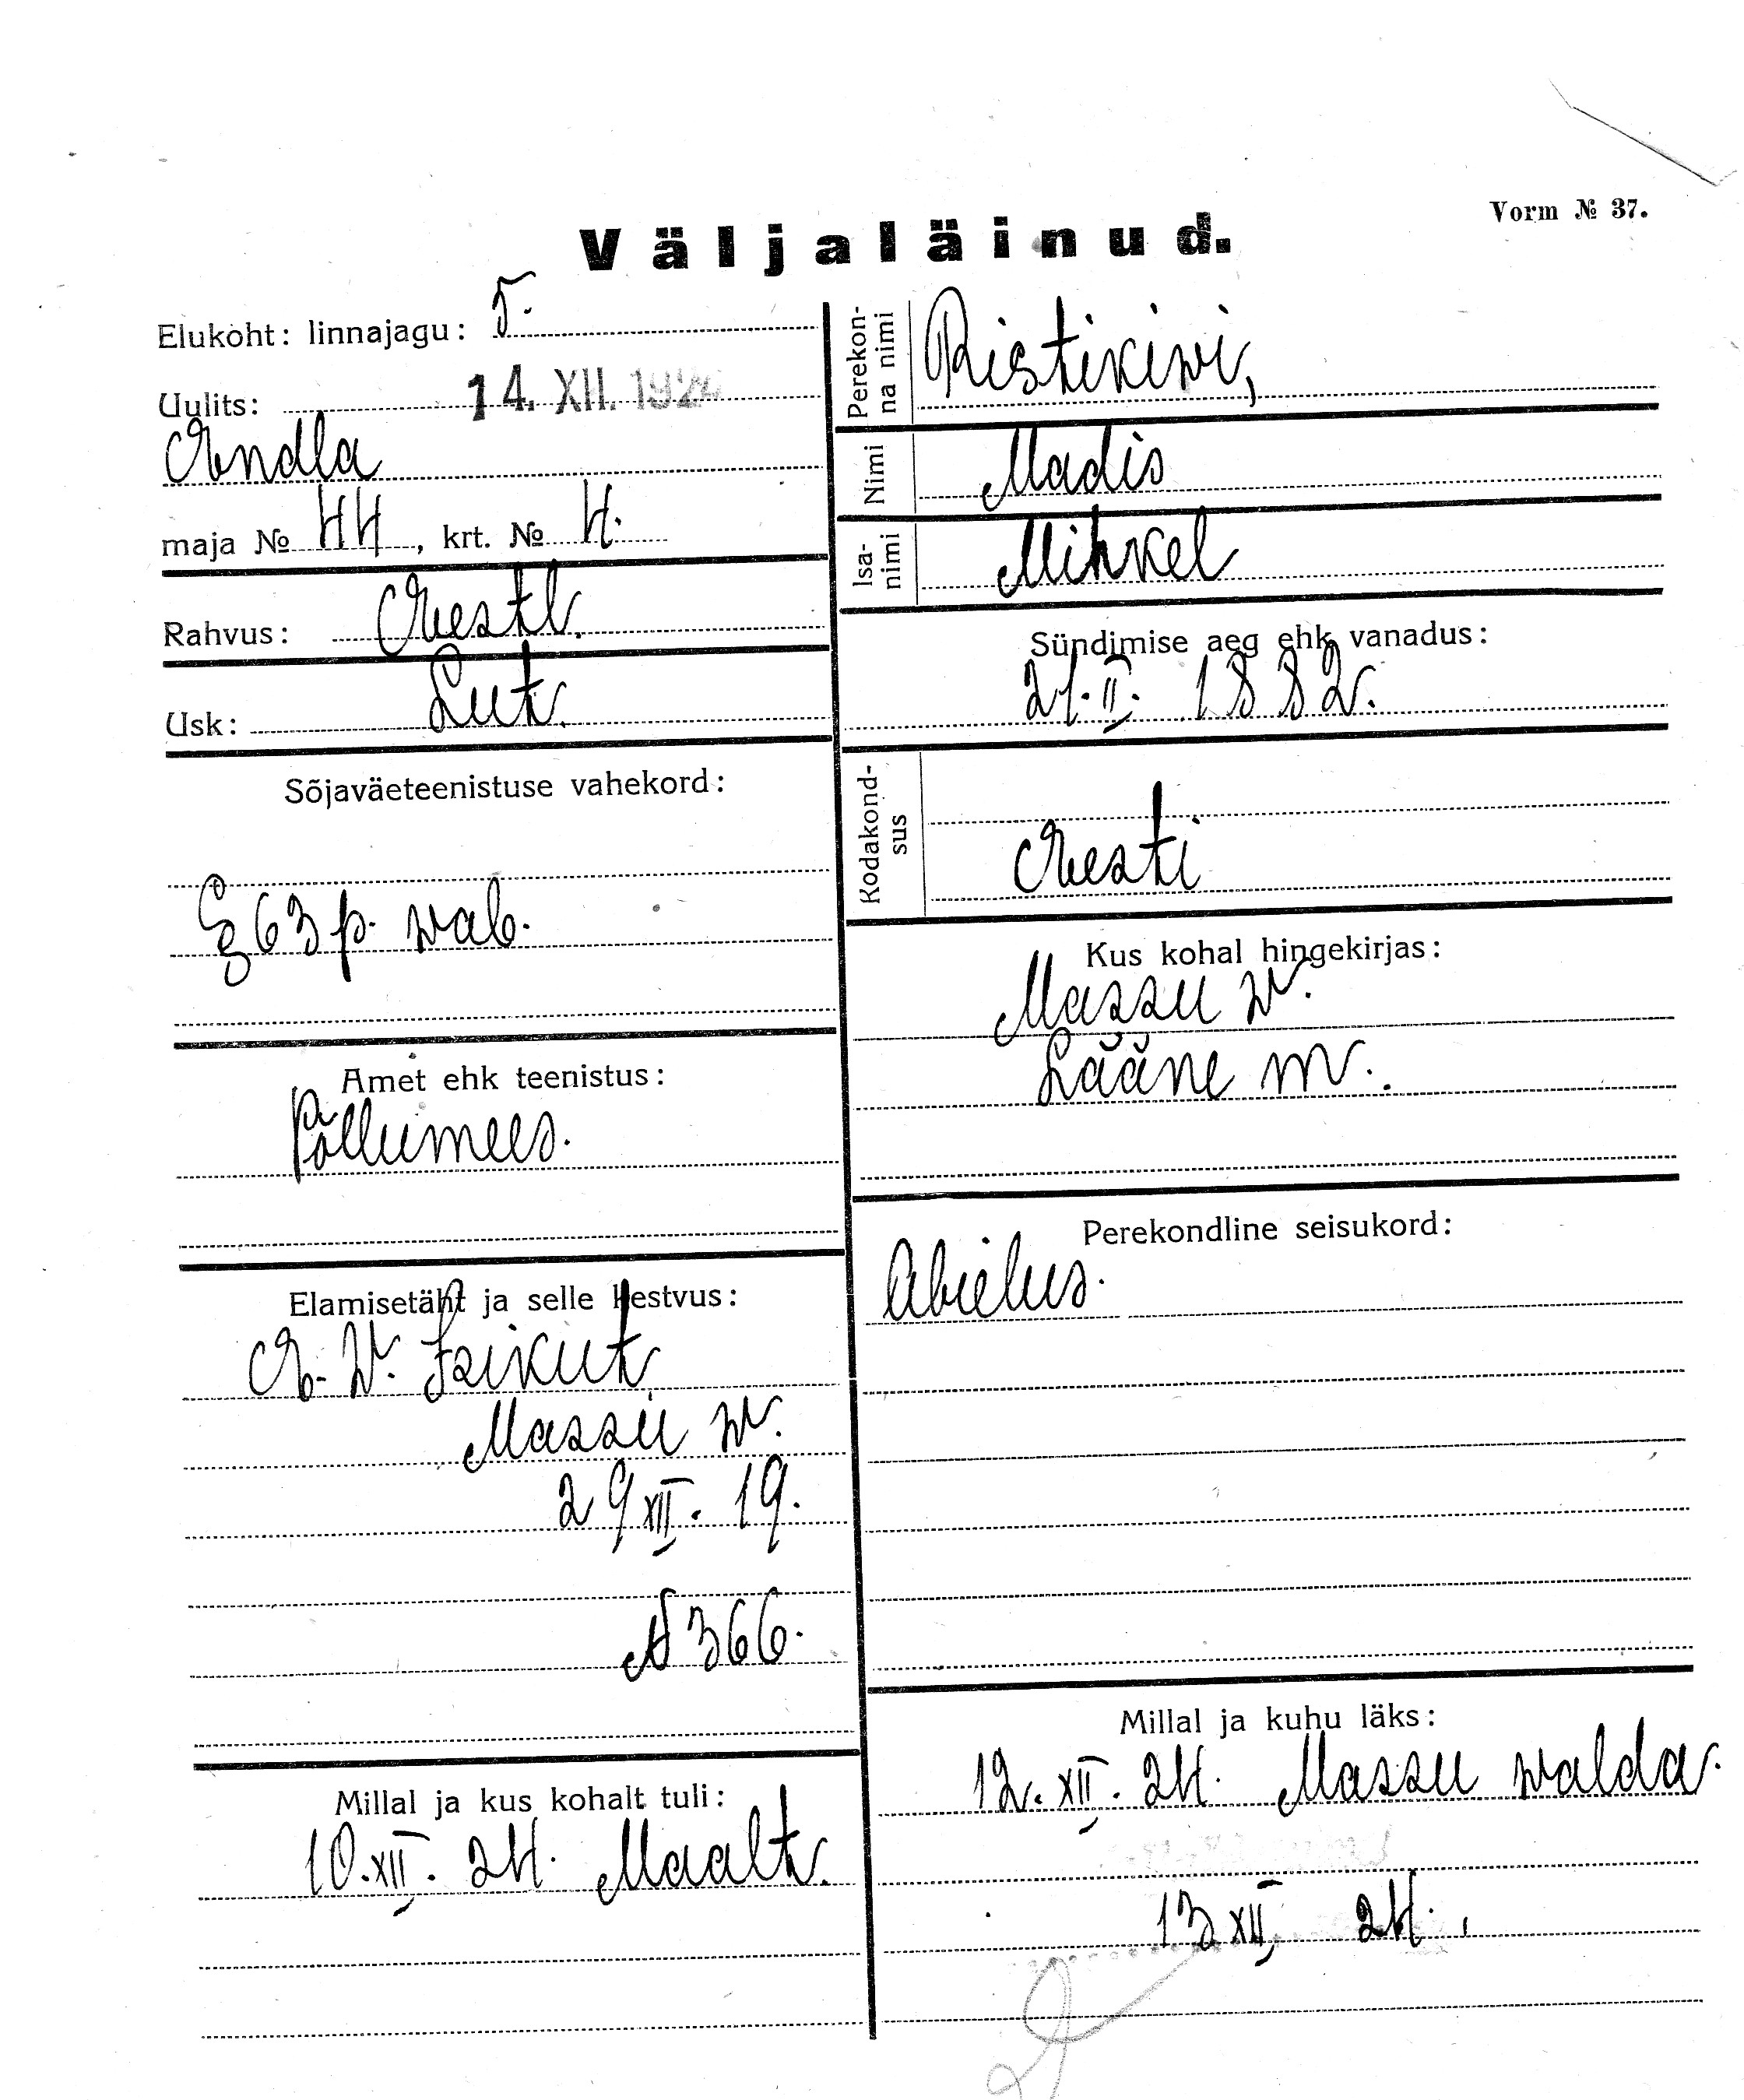 Vorm № 37.
Väljaläinud.
Elukoht: linnajagu: 5.
Uulits: 14. XII. 1924
Endla
maja № 44, krt. № 4.
Rahvus: Eestl.
Usk: Lut.
Sõjaväeteenistuse vahekord:
§ 63 p. wab.
Amet ehk teenistus:
Põllumees.
Elamisetäht ja selle kestvus:
E. W. Isikut.
Massu w.
29 XII. 19.
N 366.
Millal ja kus kohalt tuli:
10. XII. 24. Maalt.
Perekon-
na nimi
Ristikiwi,
Nimi
Madis
Isa-
nimi
Mihkel
Sündimise aeg ehk vanadus:
21. II. 1882.
Kodakond-
sus
Eesti
Kus kohal hingekirjas:
Massu w.
Lääne m.
Perekondline seisukord:
Abielus.
Millal ja kuhu läks:
12. XII. 24. Massu walda.
13 XII 24.